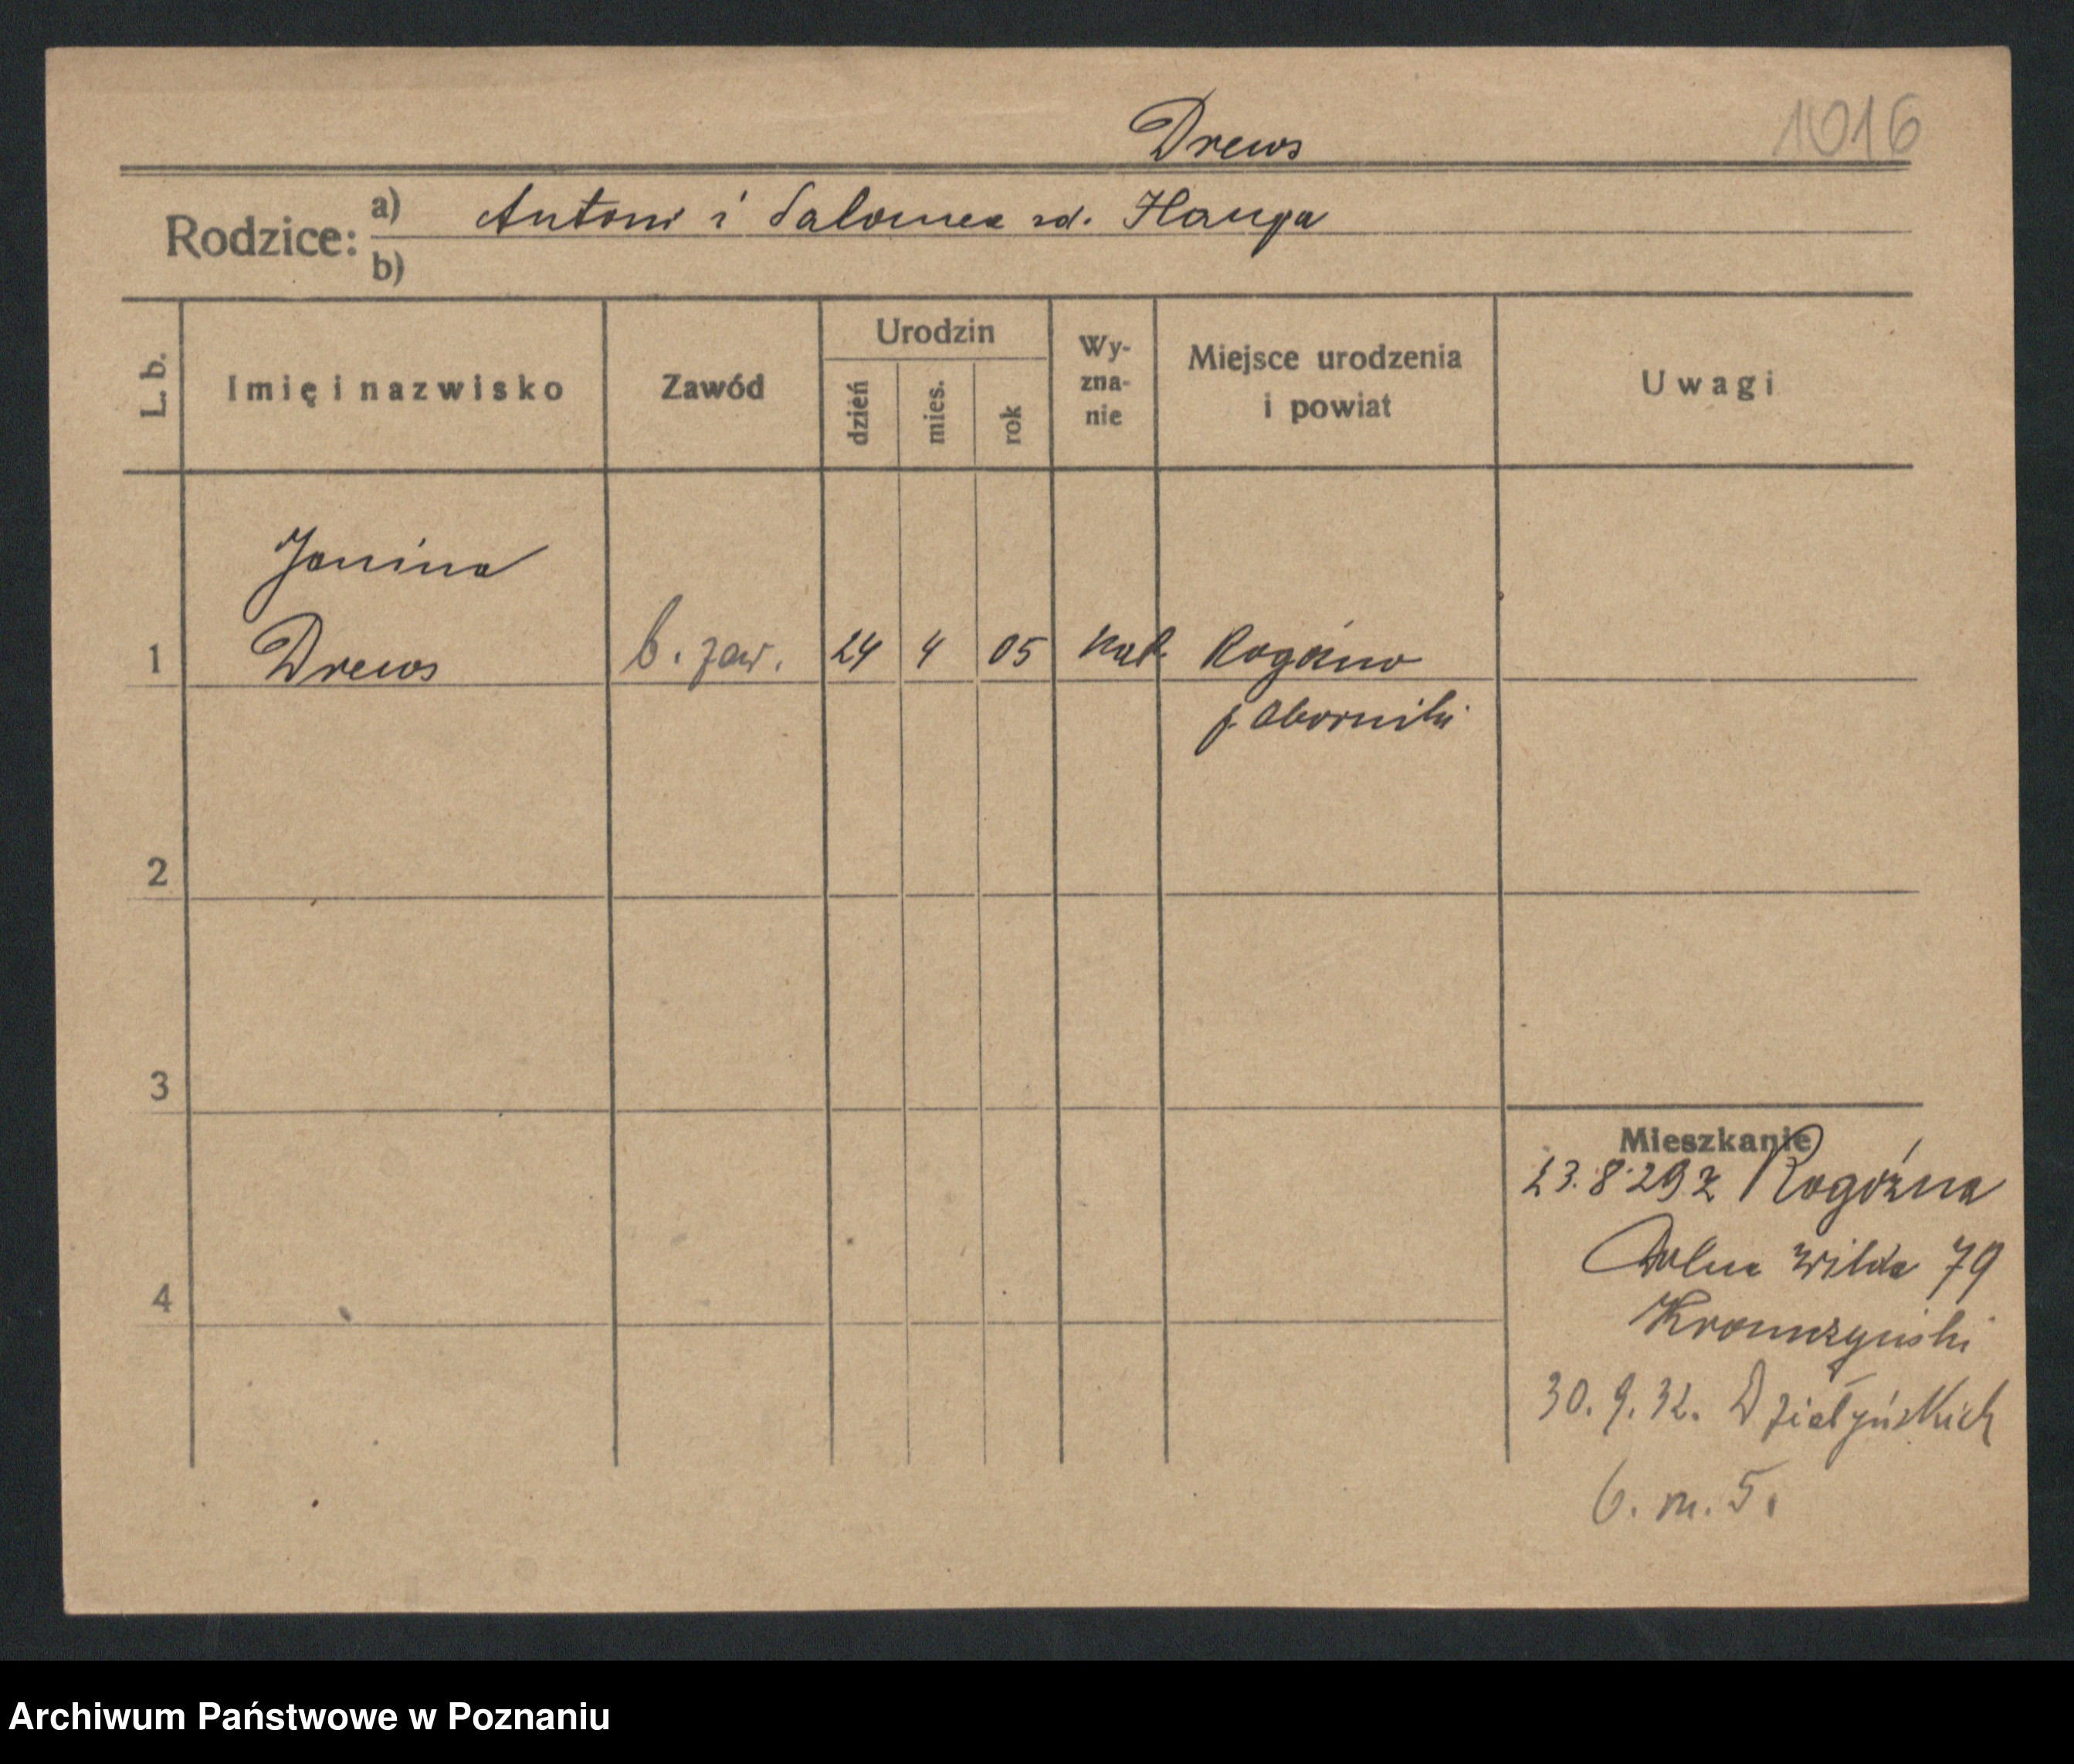 Drews
1016
Rodzice: a) Antoni i Salomea zd. Hauga
b)
L. b.
Imię i nazwisko
Zawód
Urodzin
dzień
mies.
rok
Wy-
zna-
nie
Miejsce urodzenia
i powiat
Uwagi
Janina
1 Drews b. zaw. 24 4 05 kat. Rogóźno
p. Oborniki
2
3
4
Mieszkanie
23.8.29 z Rogóźna
Dolna Wilda 79
30.9.32. Działyńskich
6. m. 5.
Archiwum Państwowe w Poznaniu